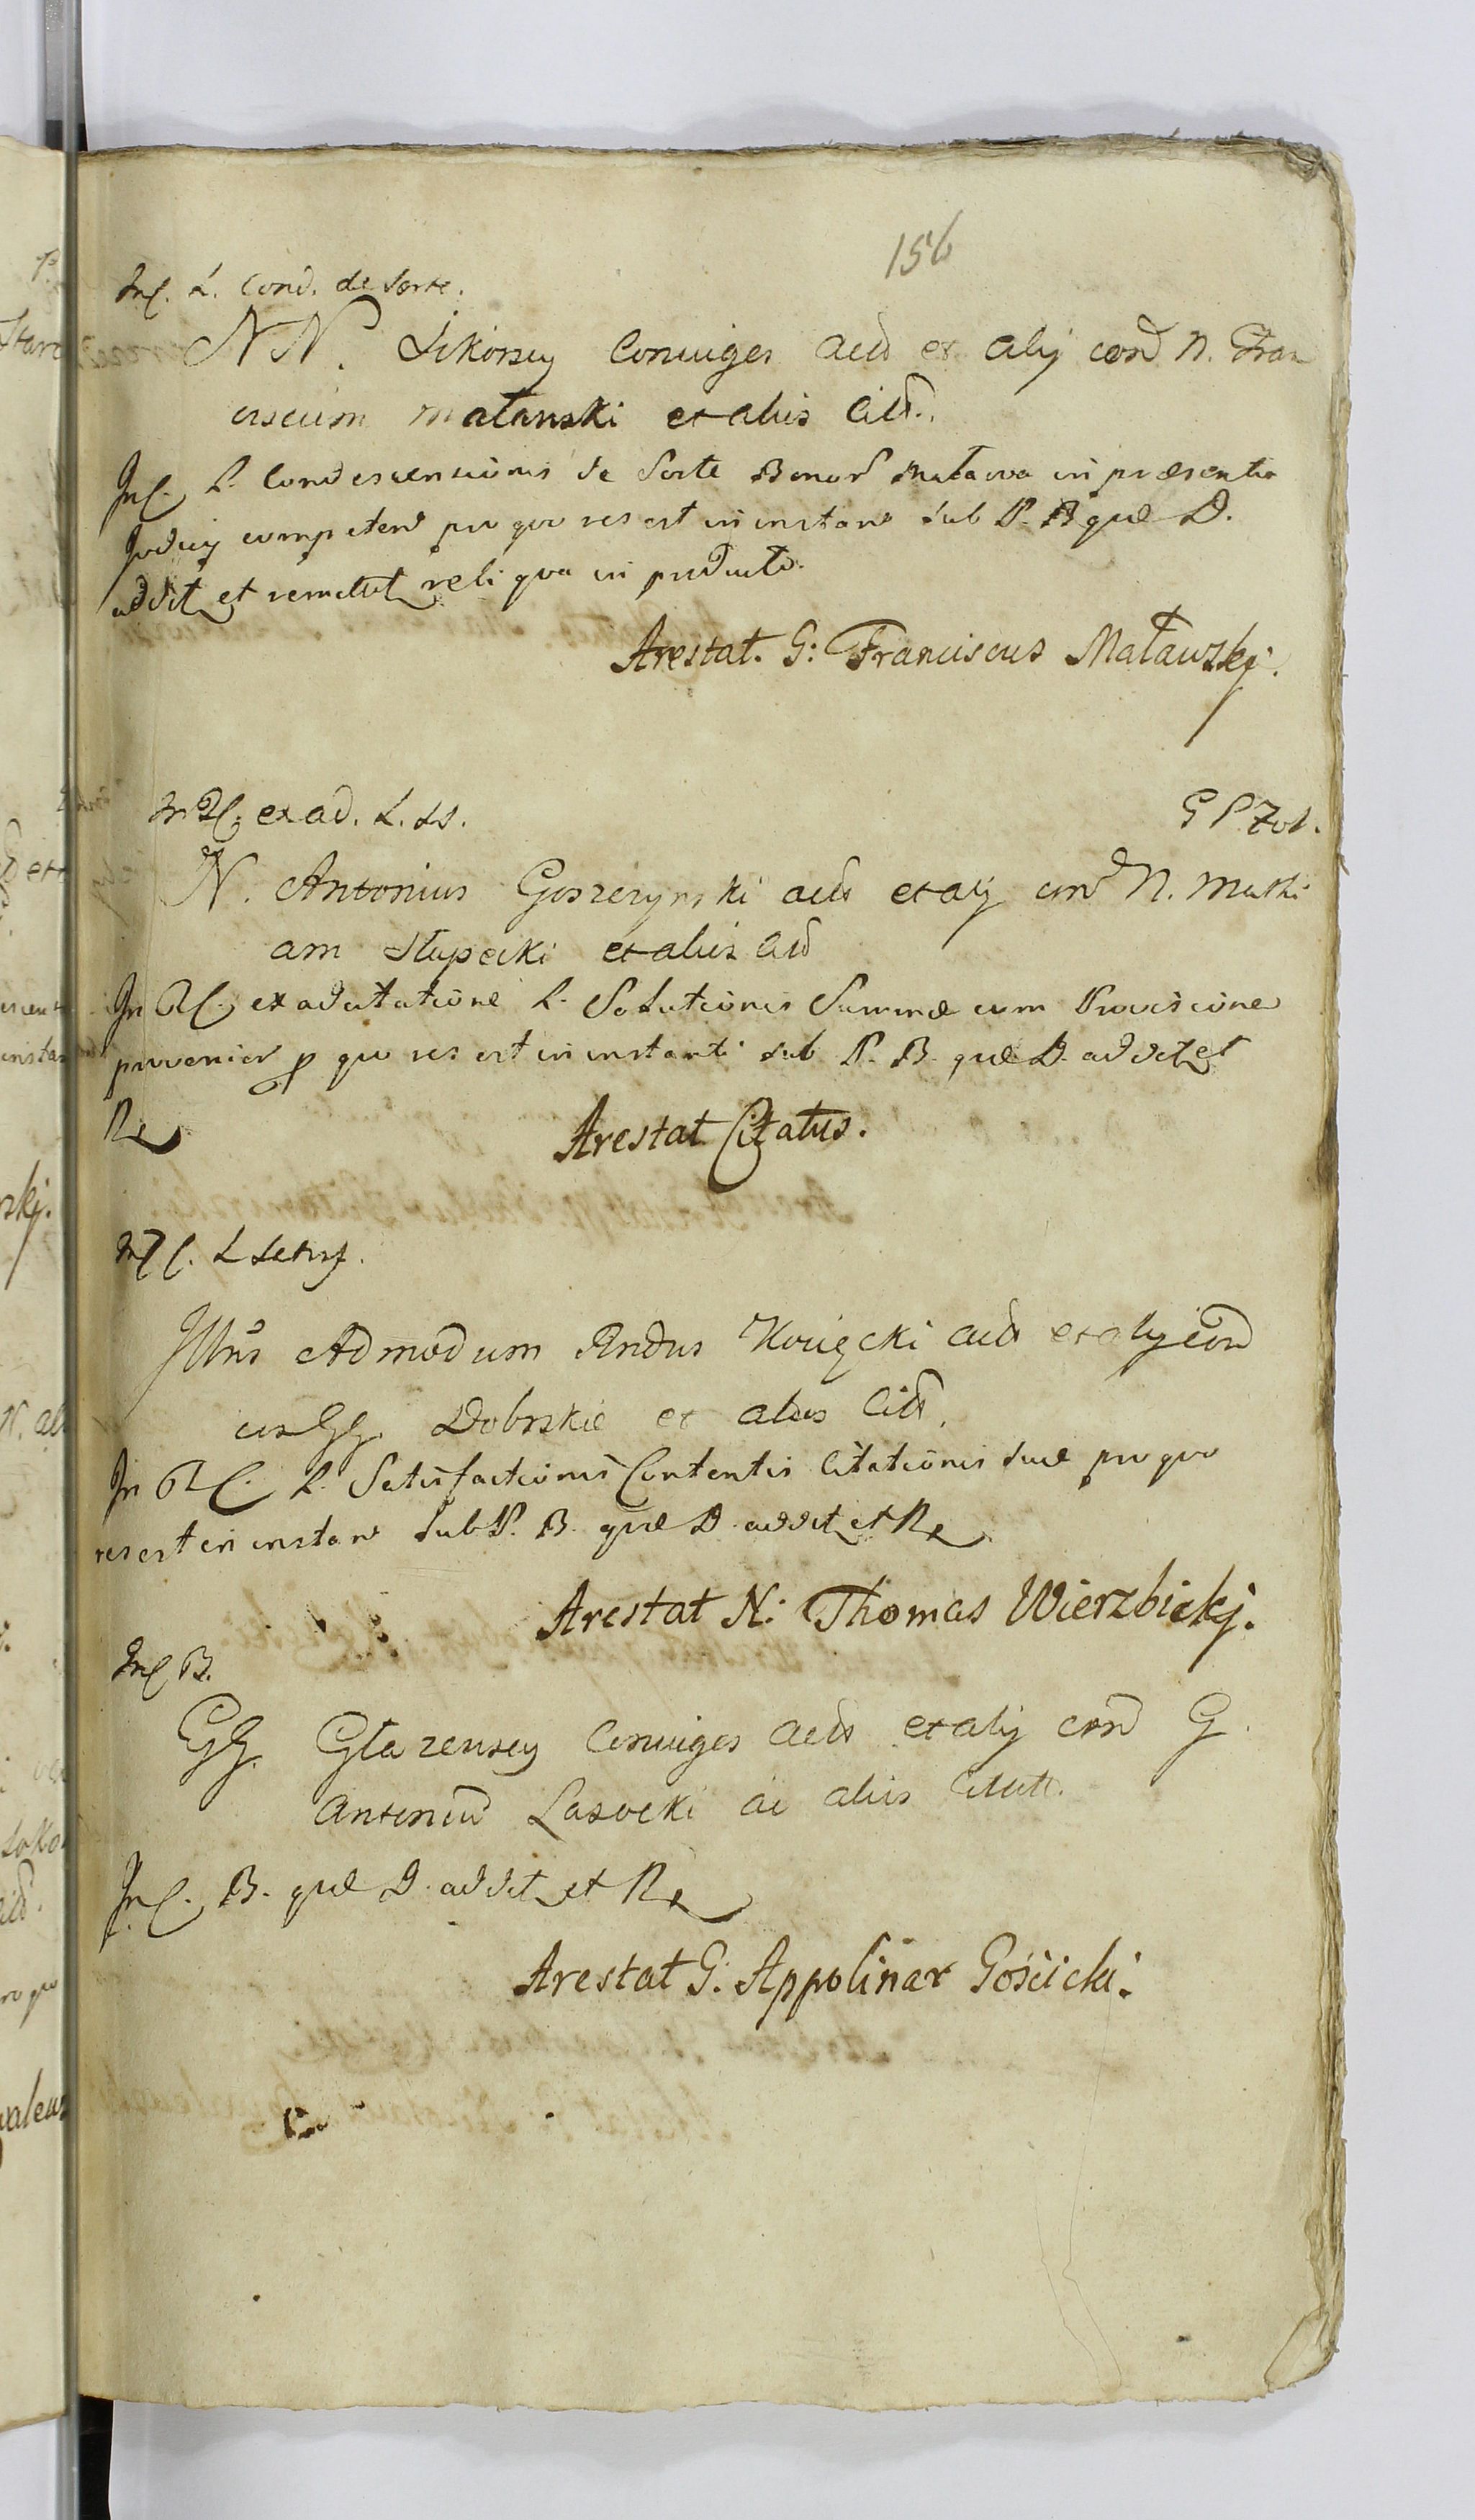 156
In C. L. Cond. de Sorte.
NN. Sikorscy Coniuges Act et alij con N. Fran
ciscum Małanski et aliis Cit.
In C. L. Condescensionis de Sorte Bonor Maława in praesentia
Judicij competen pro quo res est in instan sub P. B quae D.
addit et remittit reliqua in producto.
Arestat. G: Franciscus Maławskj.
In C. ex ad. L. SS.
G P Zot.
N. Antonius Goszczynski act et alij con N. Mathi
am Słupecki et aliis Cit
In C. ex adcitatione L. Solutionis Summae cum Provisione
provenien p quo res est in instanti sub P. B. quae D. addit et
Re
Arestat Citatus.
In C. L Satisf.
Illris Admodum Rndus Kocięcki act et alij con
GG. Dobrskie et alios Cit.
In C. L. Satisfactionis Contentis Citationis suae pro quo
res est in instan sub P. B. quae D. addit et Re
Arestat N: Thomas Wierzbickj.
In C B.
GG. Głazewscy Coniuges Act et alij con G.
Antoniu Lasocki ac aliis Citatt.
In C. B. quae D. addit et Re
Arestat G. Appolinar Gościcki.